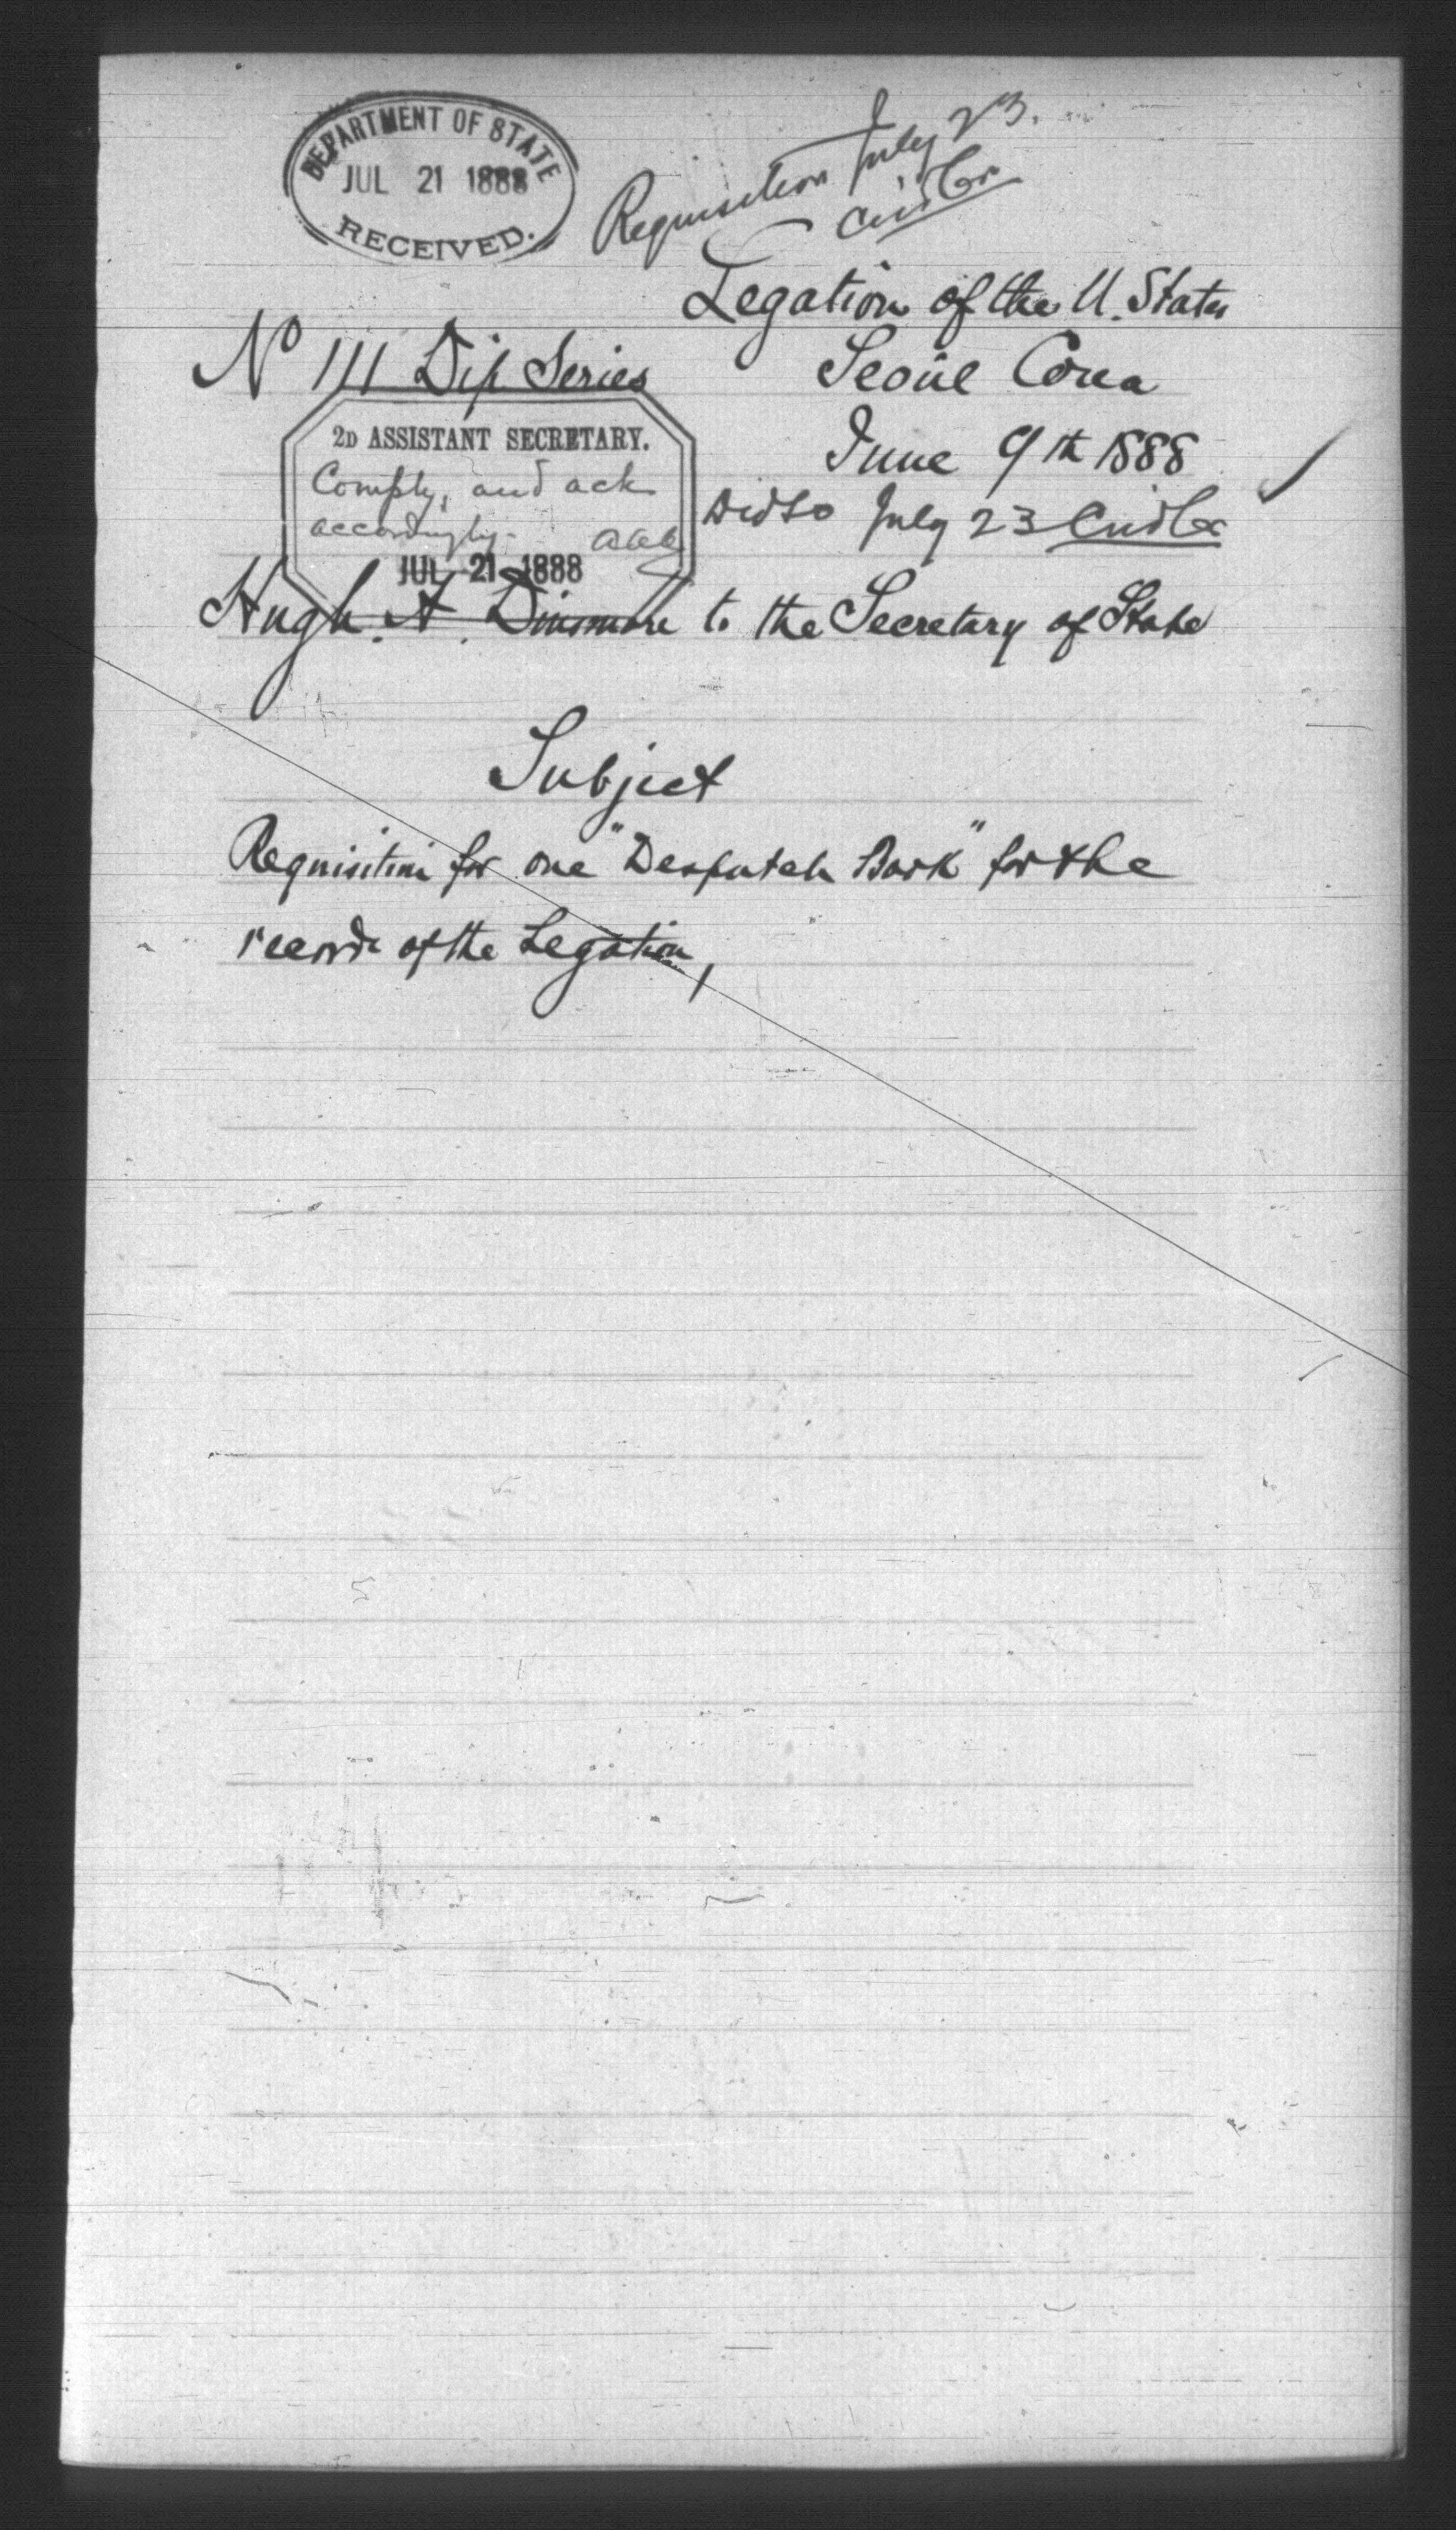 DEPARTMENT OF STATE
JUL 21 1888
RECEIVED.
Requisition July 23.
Legation of the U. States
No 111 Dip Series
Seoul Corea
June 9th 1888
2D ASSISTANT SECRETARY.
Comply, and ack
accordingly.
JUL 21 1888
Did so July 23
Hugh. A. Dinsmore to the Secretary of State
Subject
Requisition for one "Despatch Book" for the
records of the Legation,